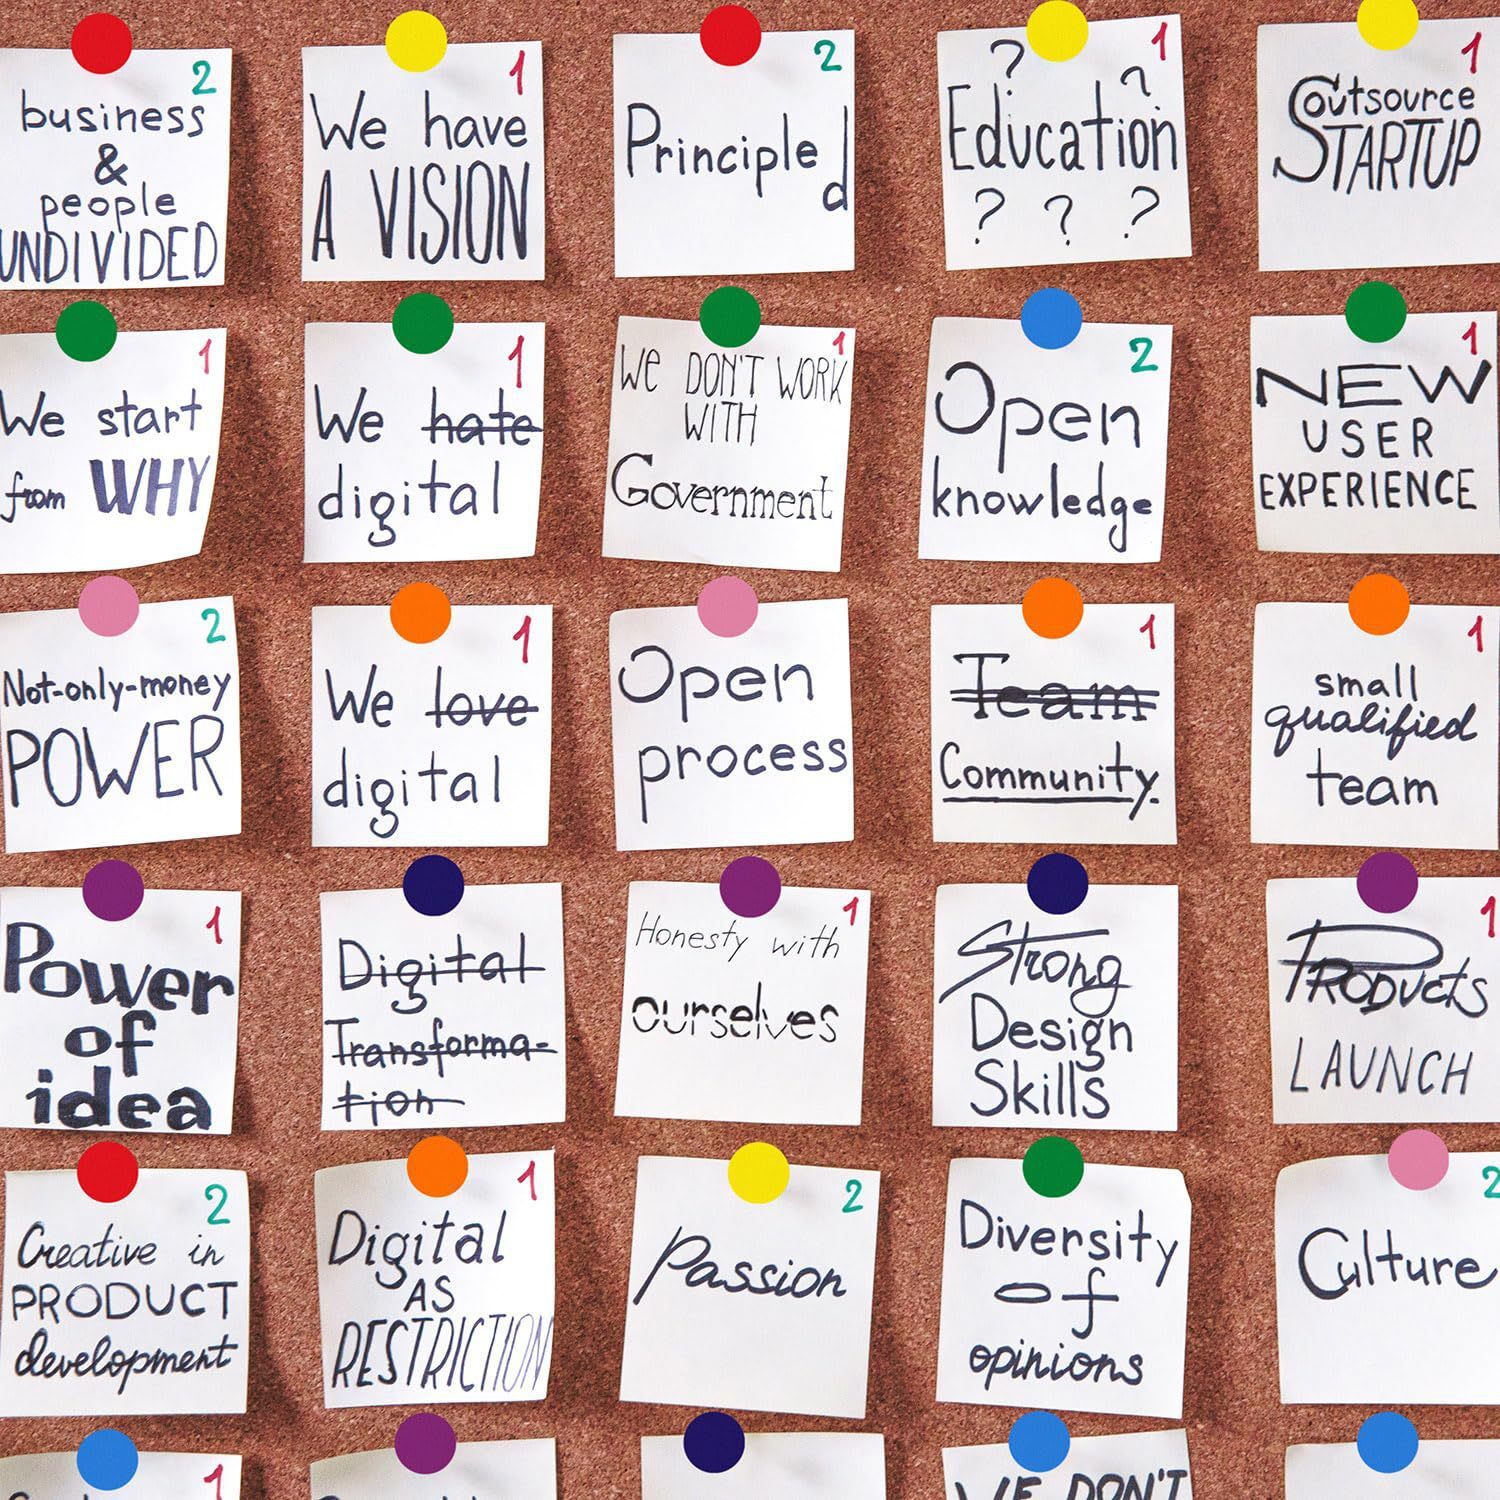 2
business
&
people
UNDIVIDED
1
We have
A VISION
2
Principled
1
? ?
Education
? ? ?
1
Outsource
STARTUP
1
We start
from WHY
1
We hate
digital
1
We DON'T WORK
WITH
Government
2
Open
knowledge
1
NEW
USER
EXPERIENCE
2
Not-only-money
POWER
1
We love
digital
Open
process
1
Team
Community.
1
small
qualified
team
1
Power
of
idea
Digital
Transforma-
tion
1
Honesty with
ourselves
Strong
Design
Skills
1
PRODUCTS
LAUNCH
2
Creative in
PRODUCT
development
1
Digital
AS
RESTRICTION
2
Passion
Diversity
of
opinions
2
Culture
1
WE DON'T